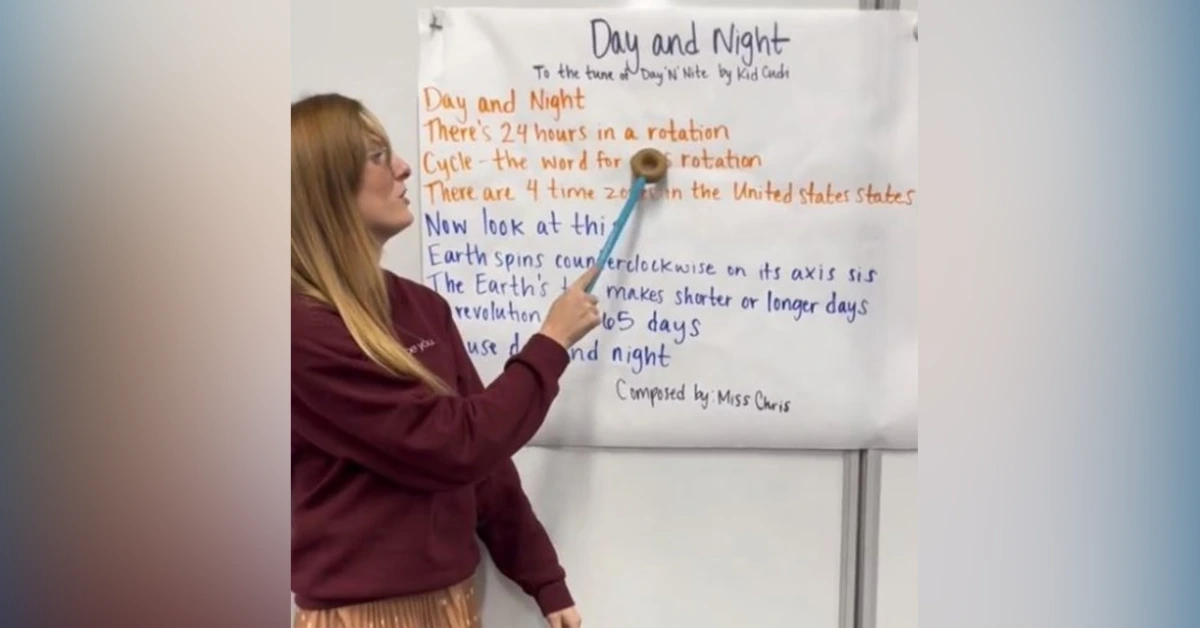 Day and Night
To the tune of Day 'N' Nite by Kid Cudi
Day and Night
There's 24 hours in a rotation
Cycle - the word for rotation
There are 4 time in the United States states
Now look at
Earth spins counterclockwise on its axis sis
The Earth's makes shorter or longer days
revolution days
night
Composed by: Miss Chris
you.